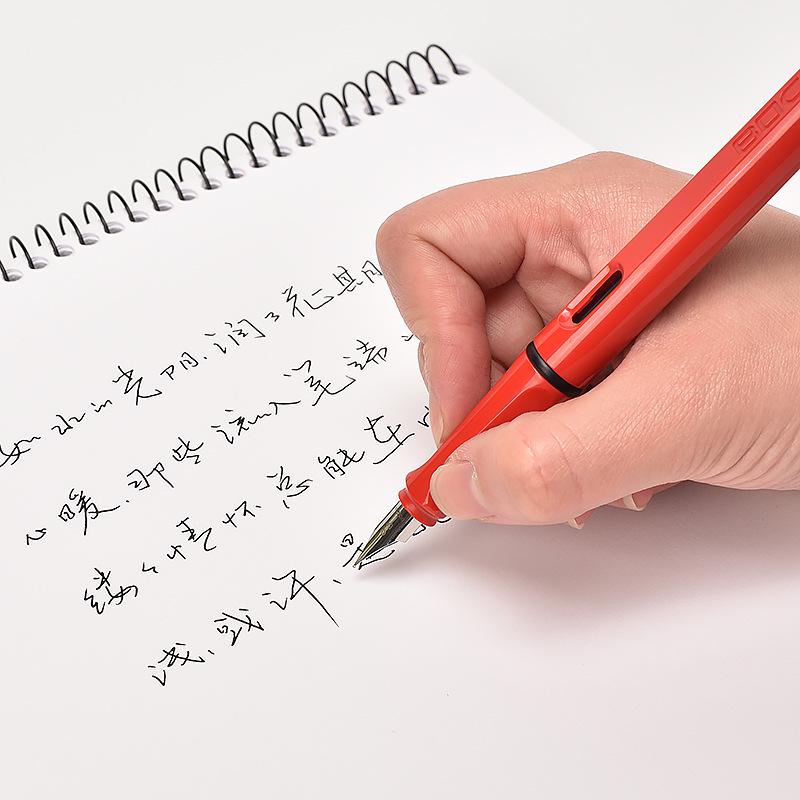 如水的光阴，润了花期
心暖，那些流入笔端
缕々情怀总能在
浅，或许，是